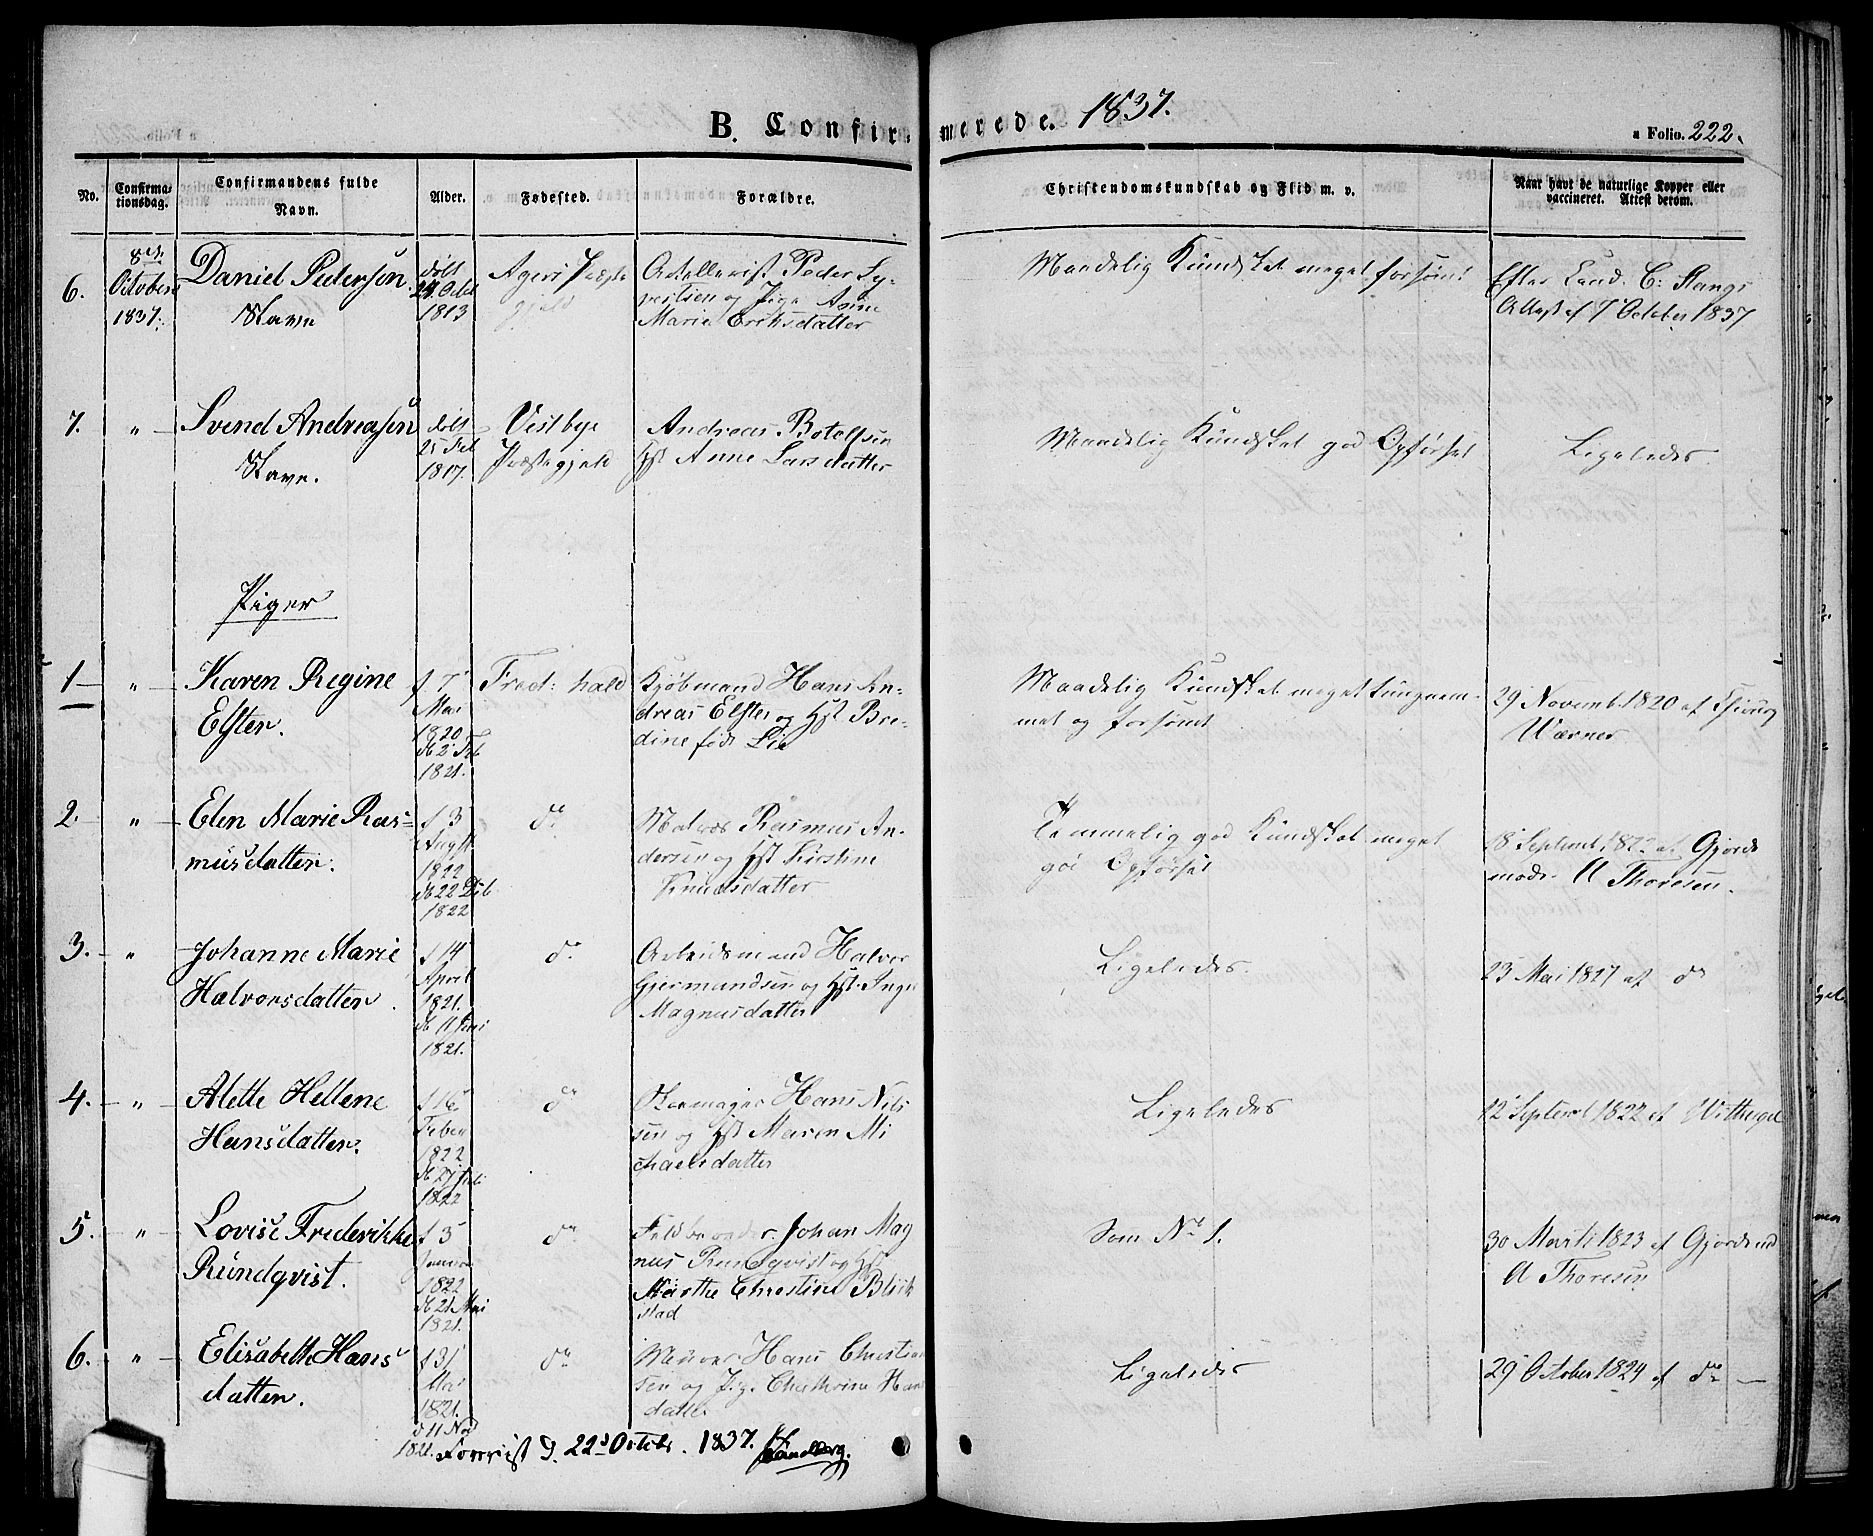 B. Confirmerede. 1837.
a Folio. 222.
No.
Confirmationsdag.
Confirmandens fulde Navn.
Alder.
Fødested.
Forældre.
Christendomskundskab og Flid m. v.
Naar havt de naturlige Kopper eller vaccineret. Attest derom.
6.
8de
October
1837.
Daniel Pedersen
Slave
døbt
24 Octbr
1813
Agers Præste
gjeld
Peder Sy-
vertsen og Pige Anne
Marie Eriksdatter
Maadelig Kundskab meget forsømt
Efter Cand. C. Stangs
Attest af 7 October 1837
7.
"
Svend Andreasen
Slave.
døbt
25 Feb
1817.
Vestbye
Præstegjeld
Andreas Botolfsen
Hst Anne Larsdatter
Maadelig Kundskab god Opførsel
Ligeledes
Piger
1
"
Karen Regine
Elster.
f 7
Mai
1820
Feb
1821.
Fred: hald
Kjøbmand Hans An-
dreas Elster og Hst Bre-
dine født Lie
Maadelig Kundskab meget tungnem-
met og forsømt
29 Novemb 1820 af
Wærner
2.
"
Elen Marie Ras-
musdatter.
f 3
Augst
1822
1822
do
Matros Rasmus An-
dersen og Hst Kirstine
Knudsdatter
Temmelig god Kundskab meget
god Opførsel
18 Septemb af Gjorde
mode A Thoresen.
3.
"
Johanne Marie
Halvorsdatter
f 14
April
1821.
1821.
do
Arbeidsmand Halvor
Gjermundsen og Hst Inge
Magnusdatter
Ligeledes.
23 Mai 1827 af do
4.
"
Alette Hellene
Hansdatter.
f 16
Febr
1822
1822
do
Skomager Hans Niels
sen og Hst Maren Mi
chaelsdatter
Ligeledes
12 Septemb 1822 af
5.
"
Lovise Frederikke
Rundqvist.
f 5
Januar
1822
21 Mai
1821.
do
Johan Mag
nus Rundqvist og Hst
Marthe Christine Blik
stad
Som No 1.
30 Marts 1823 af Gjordemd
A Thoresen
6.
"
Elisabeth Hans
datter.
f 31
Mai
1821.
d 11 Nov
1821.
do
Murer Hans Christian
sen og Pige Cathrine Han
datter
Ligeledes
29 October 1824 af do
d. 22d Octobr. 1837.